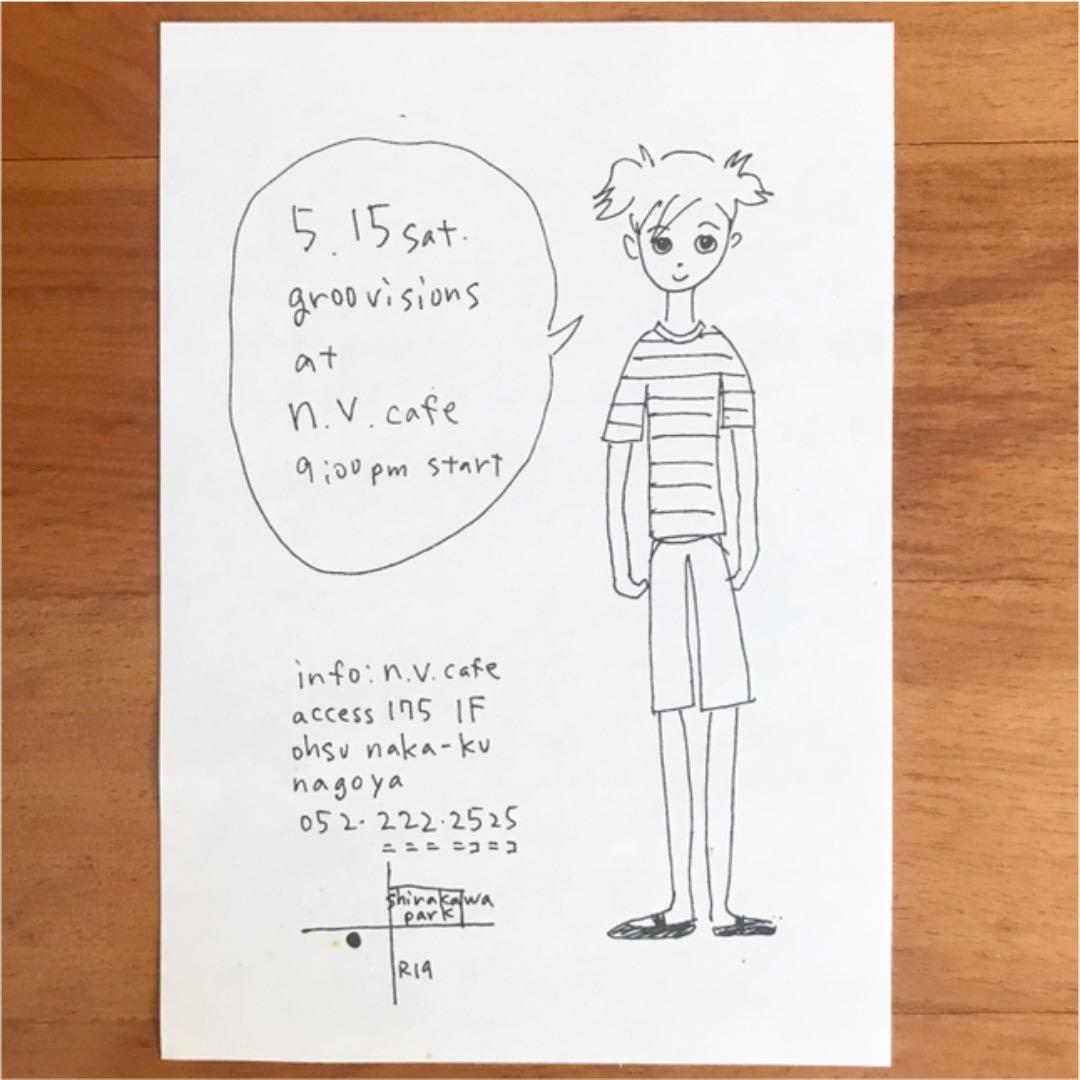 5.15 sat.
groovisions
at
n.v. cafe
9:00 pm start
info: n.v. cafe
access 175 1F
ohsu naka-ku
nagoya
052. 222.2525
ニニニ ニコニコ
shirakawa
park
R19